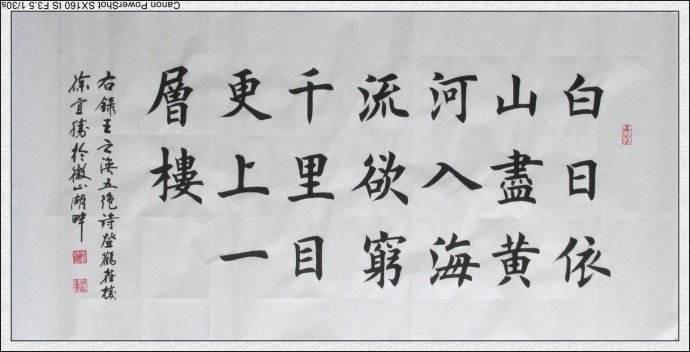 白日依
山盡黄
河入海
流欲窮
千里目
更上一
層樓
右録王之渙五绝诗登鸛雀楼
徐宜勝於微山湖畔
Canon PowerShot SX160 IS F3.5 1/30s